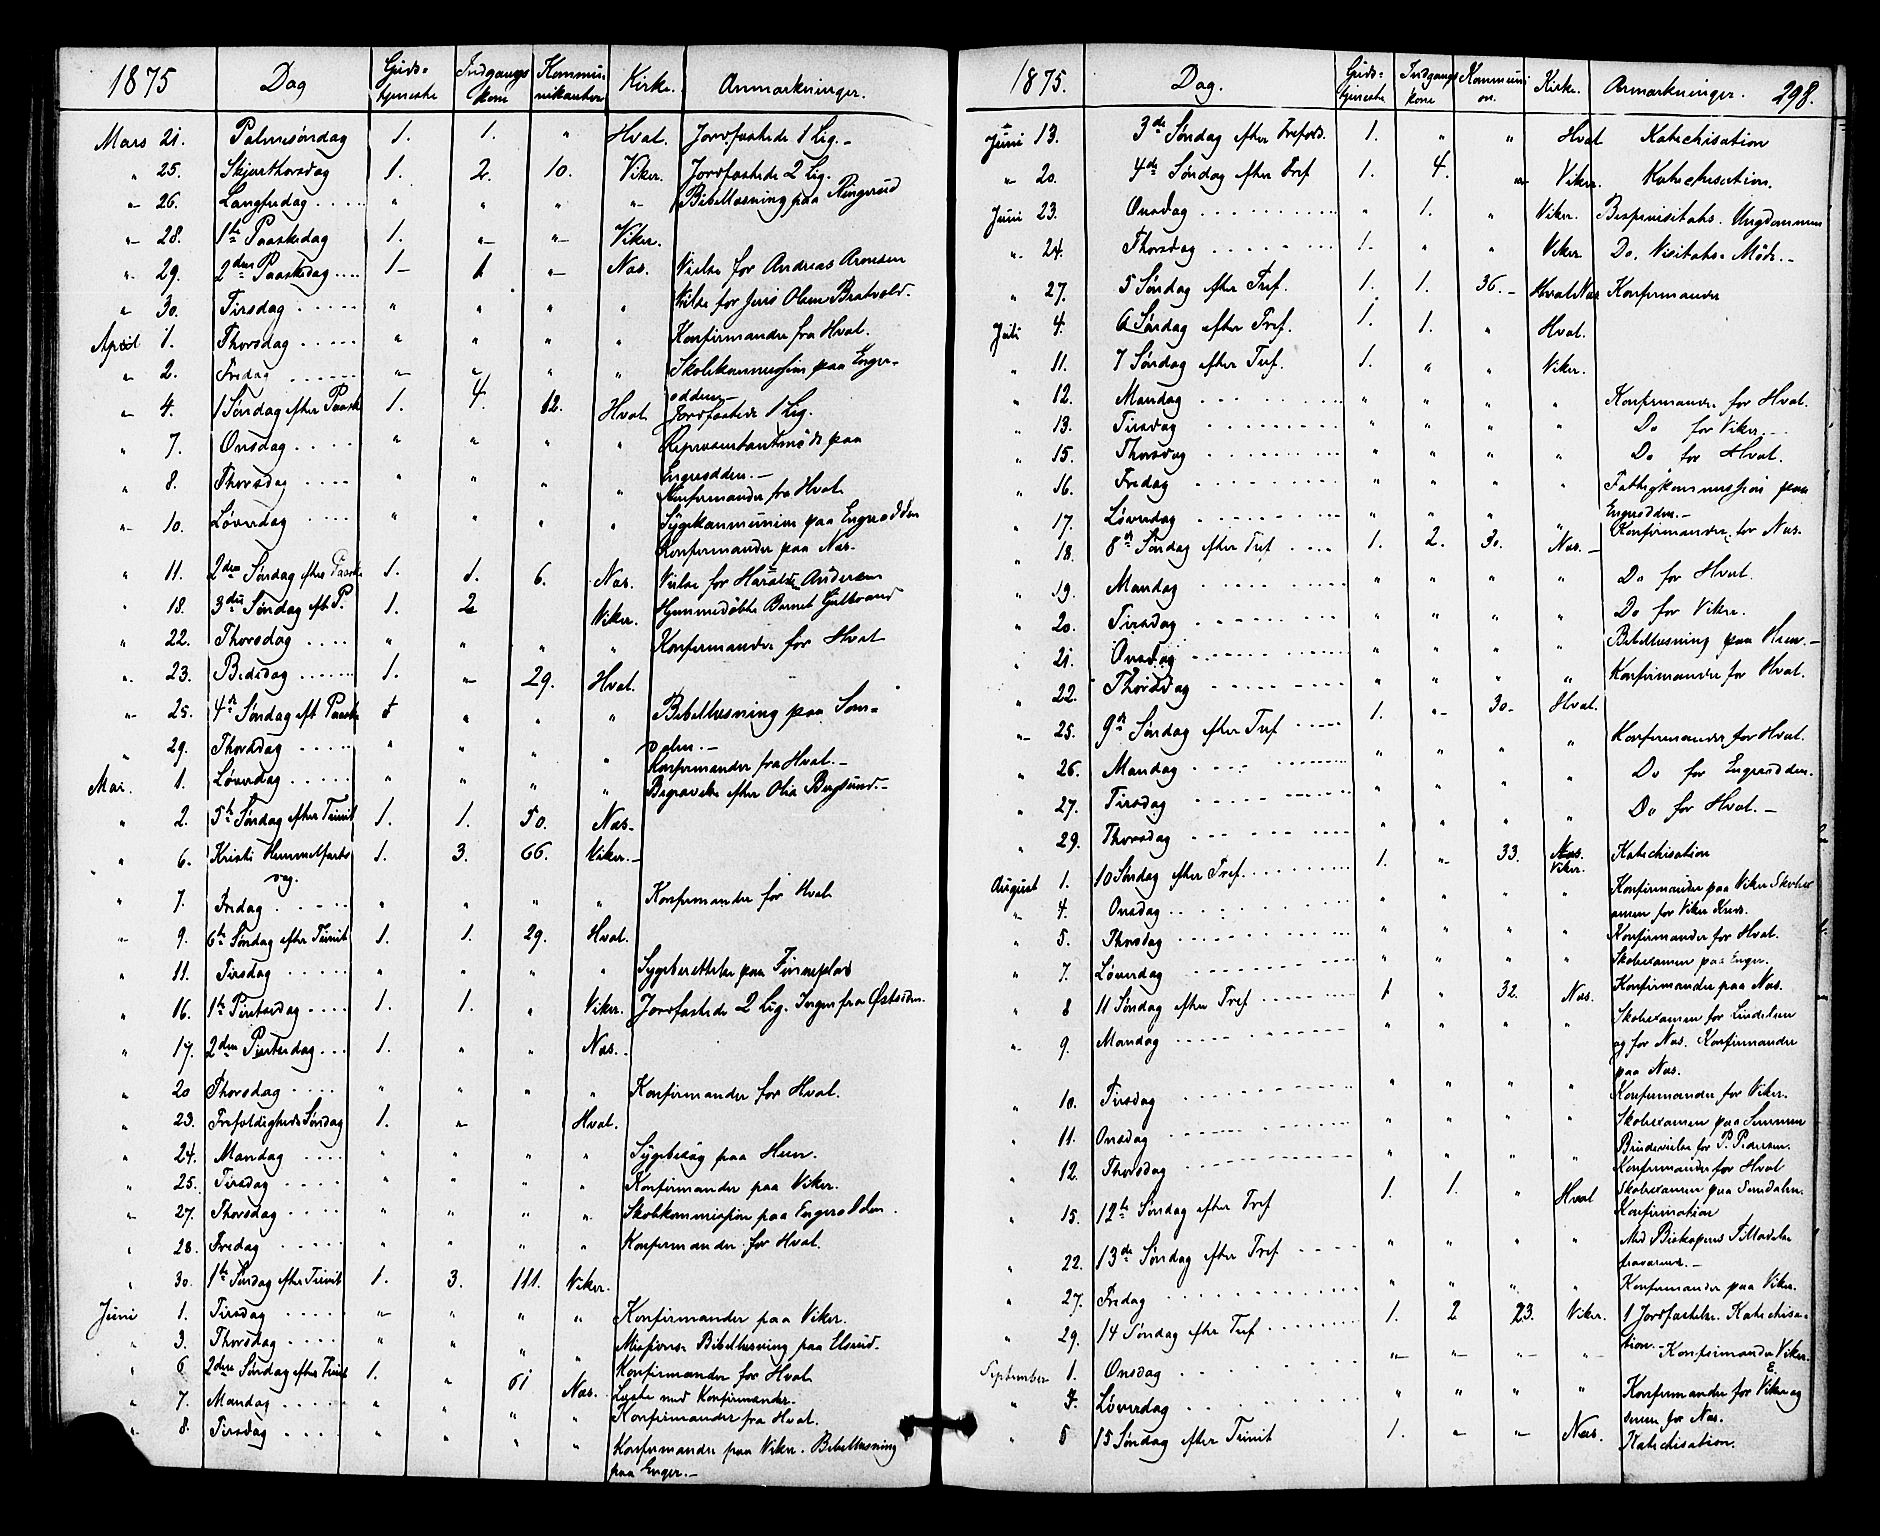 1875 Dag Guds- Indgangs Kommu- Kirke. Anmærkninger.
tjeneste kone nikanter
Mars 21. Palmesøndag 1. 1. " Hval. Jordfæstede 1 Lig.-
" 25. Skjærthorsdag 1. 2. 10. Viker. Jordfæstede 2 Lig.
" 26. Langfredag . . . . " " " " Bibellæsning paa Ringerud
" 28. 1ste Paaskedag 1. " " Viker.
" 29. 2den Paaskedag . . . . 1 1 " Næs. Vielse for Andreas Aronsen
" 30. Tirsdag . . . . . " " " " Vielse for Jens Olsen Bratvold.
April 1. Thorsdag . . . . . " " " " Konfirmander fra Hval.
" 2. Fredag . . . . . " " " " Skolekommission paa Enger-
odden
" 4. 1 Søndag efter Paaske 1. 4. 12. Hval Jordfæstede 1 Lig.
" 7. Onsdag . . . . " " " " Repræsentantmøde paa
Engerodden.-
" 8. Thorsdag . . . . " " " " Konfirmander fra Hval
" 10. Løverdag . . . . " " " " Sygekommunion paa Engerodden
Konfirmander paa Næs.
" 11. 2den Søndag efter Paaske 1. 1. 6. Næs. Vielse for Andersen
" 18. 3die Søndag eft P. 1. 2 Viker. Hjemmedøbte Barnet Gulbrand
" 22. Thorsdag . . . . " " " " Konfirmander for Hval
" 23. Bededag . . . . . 1. " 29. Hval.
" 25. 4de Søndag eft Paaske " " " Bibellæsning paa Søn-
dalen.-
" 29. Thorsdag . . . . . " " " " Konfirmander fra Hval.-
Mai. 1. Løverdag . . . . " " " " Begravelse efter Olia Bergsund.-
" 2. 5te Søndag efter Trinit 1. 1. 50. Næs.
" 6. Kristi Himmelfarts 1. 3. 66. Viker.
dag.
" 7. Fredag . . . . . " " " " Konfirmander for Hval
" 9. 6te Søndag efter Trinit 1. 1. 29. Hval.
" 11. Tirsdag . . . . . " " " " Sygeberettelse paa Finneplads
" 16. 1ste Pintsedag . . . . 1. 1. " Viker. Jordfæstede 2 Lig. Inger fra Østsiden.
" 17. 2den Pintsedag . . . 1. " " Næs.
" 20 Thorsdag . . . . . " " " " Konfirmander for Hval.
" 23. Trefoldigheds Søndag 1. " Hval.
" 24. Mandag . . . . " " " " Sygebesøg paa Heen.
" 25. Tirsdag . . . . " " " " Konfirmander paa Viker.
" 27. Thorsdag . . . . " " " " Skolekommission paa Engerodden.
" 28. Fredag . . . . . " " " " Konfirmander for Hval.
" 30. 1ste Søndag efter Trinit 1. 3. 111. Viker.
Juni 1. Tirsdag . . . . . " " " " Konfirmander paa Viker.
" 3. Thorsdag . . . . " " " " Missions- Bibellæsning paa Elsrud.
" 6 2den Søndag efter Trinit 1. " 61 Næs. Konfirmander for Hval
" 7. Mandag . . . . " " " " Konfirmander fra Hval.
" 8. Tirsdag . . . . " " " " Konfirmander paa Viker. Bibellæsning
paa Enger.-
1875. Dag. Guds- Indgangs Kommuni Kirke. Anmærkninger. 298.
tjeneste kone on.
Juni 13. 3de Søndag efter Trefold. 1. " " Hval Katechisation
" 20. 4de Søndag efter Tref 1. 4. " Viker. Katechisation.
Juni 23. Onsdag . . . . . " 1. " Viker. Bispevisitats. Ungdommen
" 24. Thorsdag . . . . . 1. " " Viker Do. Visitats- Møde.-
" 27. 5 Søndag efter Tref. 1. 1. 36.- Hval Næs Konfirmander
Juli 4. 6 Søndag efter Tref. 1. 1. " Hval.
" 11. 7 Søndag efter Tref. 1. " " Viker.
" 12. Mandag . . . . . " " " " Konfirmander for Hval.
" 13. Tirsdag . . . . . " " " " Do for Viker.-
" 15. Thorsdag . . . . . " " " " Do for Hval.
" 16. Fredag . . . . . " " " " Fattigkommission paa
Engerodden.-
" 17. Løverdag . . . . . " " " " Konfirmander for Næs.
" 18. 8de Søndag efter Tref . . . . 1. 2. 30. Næs.-
" 19. Mandag . . . . . " " " " Do for Hval.
" 20. Tirsdag . . . . . " " " " Do for Viker.
" 21. Onsdag . . . . . " " " " Bibellæsning paa Heen.-
" 22. Thorsdag . . . . . " " " " Konfirmander for Hval.
" 25. 9de Søndag efter Tref . . . . 1. " 30- Hval.
" 26. Mandag . . . . . " " " " Konfirmander for Hval.
" 27. Tirsdag . . . . . " " " " Do for Engerodden.
" 29. Thorsdag . . . . . " " " " Do for Hval.-
August 1. 10 Søndag efter Tref. . . . . 1. " 33. Næs. Katechisation
Viker.
" 4. Onsdag . . . . . " " " " Konfirmander paa Viker Skolex
amen for Viker Kreds.
" 5. Thorsdag . . . . . " " " " Konfirmander for Hval.
" 7. Løverdag . . . . . " " " " Skolexamen paa Enger.
Konfirmander paa Næs.
" 8 11 Søndag efter Tref . . . . 1 " 32. Næs.
" 9. Mandag . . . . . " " " " Skolexamen for Lindelien
og for Næs. Konfirmander
paa Næs.
" 10. Tirsdag . . . . . " " " " Konfirmander for Viker.
" 11. Onsdag . . . . . " " " " Skolexamen paa Semmen
Brudevielse for P. Pedersen.
" 12. Thorsdag . . . . . " " " " Konfirmander for Hval
Skolexamen paa Søndalen.
" 15. 12te Søndag efter Tref 1. 1. " Hval Konfirmation
" 22. 13de Søndag efter Tref . . . . " " " " Med Biskopens Tilladelse
fraværende.-
" 27. Fredag . . . . . " " " " Konfirmander paa Viker.
" 29. 14 Søndag efter Tref . . . . 1. 2 23. Viker. 1 Jordfæstelse. Katechisa-
tion.-
September 1. Onsdag . . " " " " Konfirmander Viker.
" 4. Løverdag . . . . . " " " " Konfirmander for Viker og
senere for Næs.
" 5 15 Søndag efter Trinit 1. " " Næs. Katechisation.